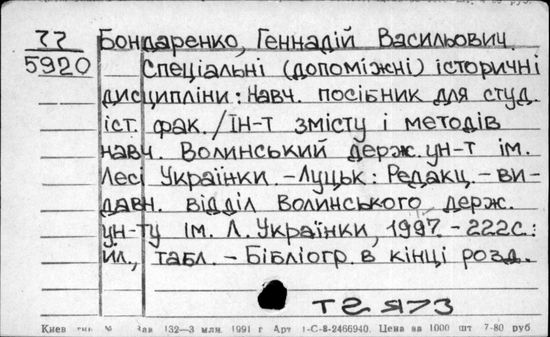 77 Бондаренко, Геннадій Васильович.
5920 Спеціальні (допоміжні) історичні
дисципліни: Навч. посібник для студ.
іст. фак. / Ін-т змісту і методів
навч. Волинський держ. ун-т ім.
Лесі Українки. - Луцьк: Редакц. - ви-
давн. відділ Волинського держ.
ун-ту ім. Л. Українки, 1997. - 222с.:
ил., табл. - Бібліогр. в кінці розд.
Киев тип. № Зак 132—3 млн. 1991 г Арт 1-С-8-2466940. Цена за 1000 шт 7-80 руб.